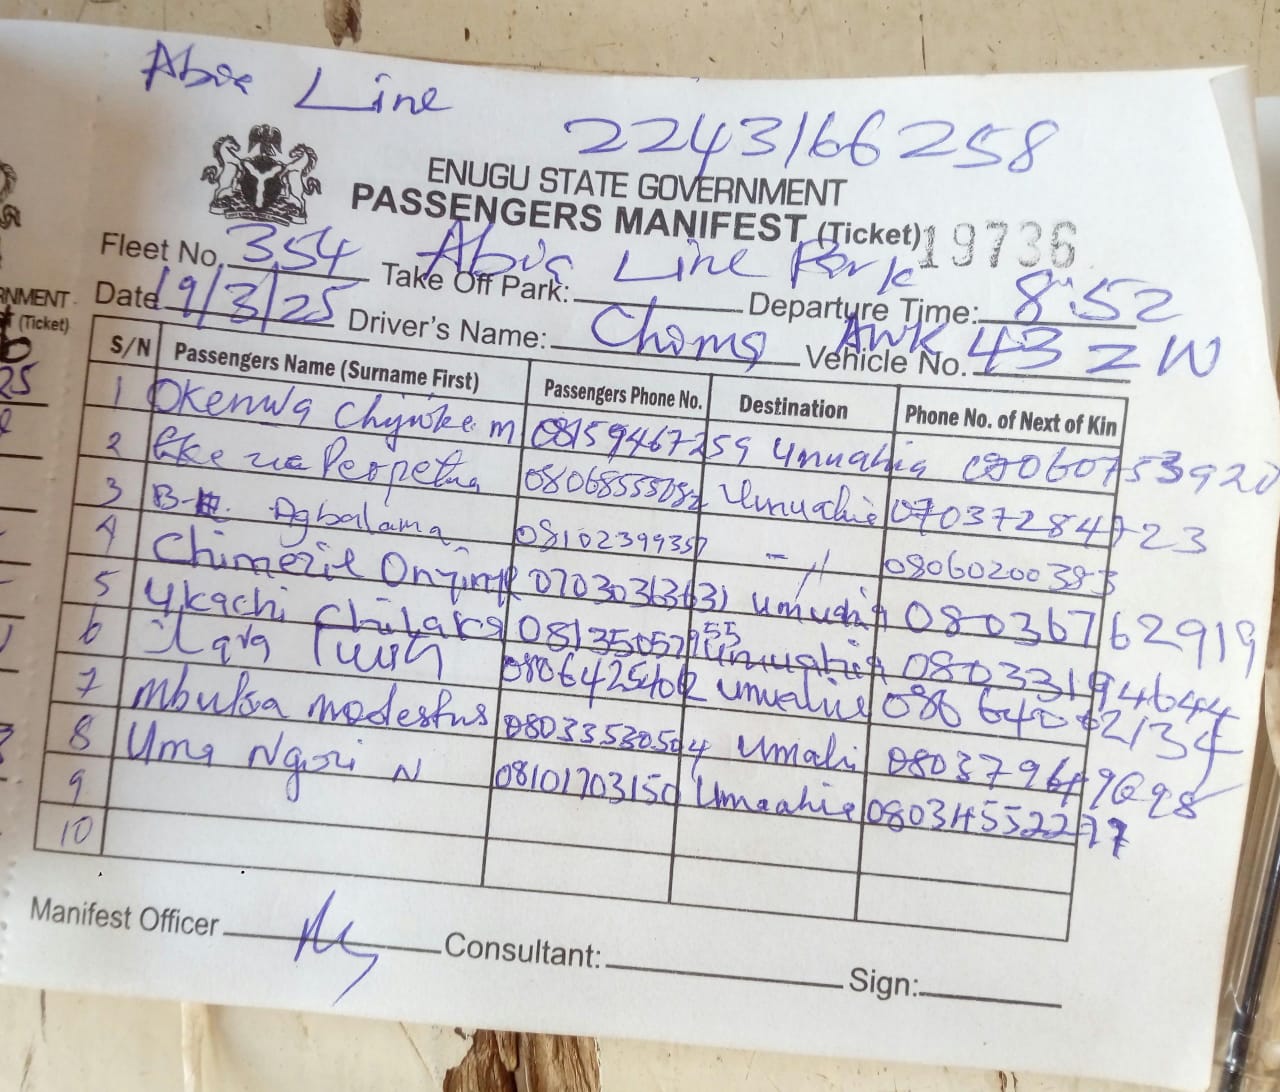 Abia Line
2243166258
ENUGU STATE GOVERNMENT
PASSENGERS MANIFEST (Ticket) 19736
Fleet No. 354 Take Off Park: Abia Line Park Departure Time: 8:52
Date 19/3/25 Driver's Name: Choma Vehicle No. AWK 43 ZW
S/N Passengers Name (Surname First) Passengers Phone No. Destination Phone No. of Next of Kin
1 Okenwa 08159467259 Umuahia 08060753920
2 Perpetua Umuahia 07037284723
3 Agbalama 08102399357 - 11 08060200383
4 Chimezie 07030363631 Umuahia 08036762919
5 Ukachi 08135057955 Umuahia 08033194644
6 Umuahia
7 Mbuksa Modestus 08033530504 Umuahi
8 Uma Ngozi N 08101703150 Umuahia 08034552277
9
10
Manifest Officer Consultant: Sign:
NMENT
(Ticket)
25